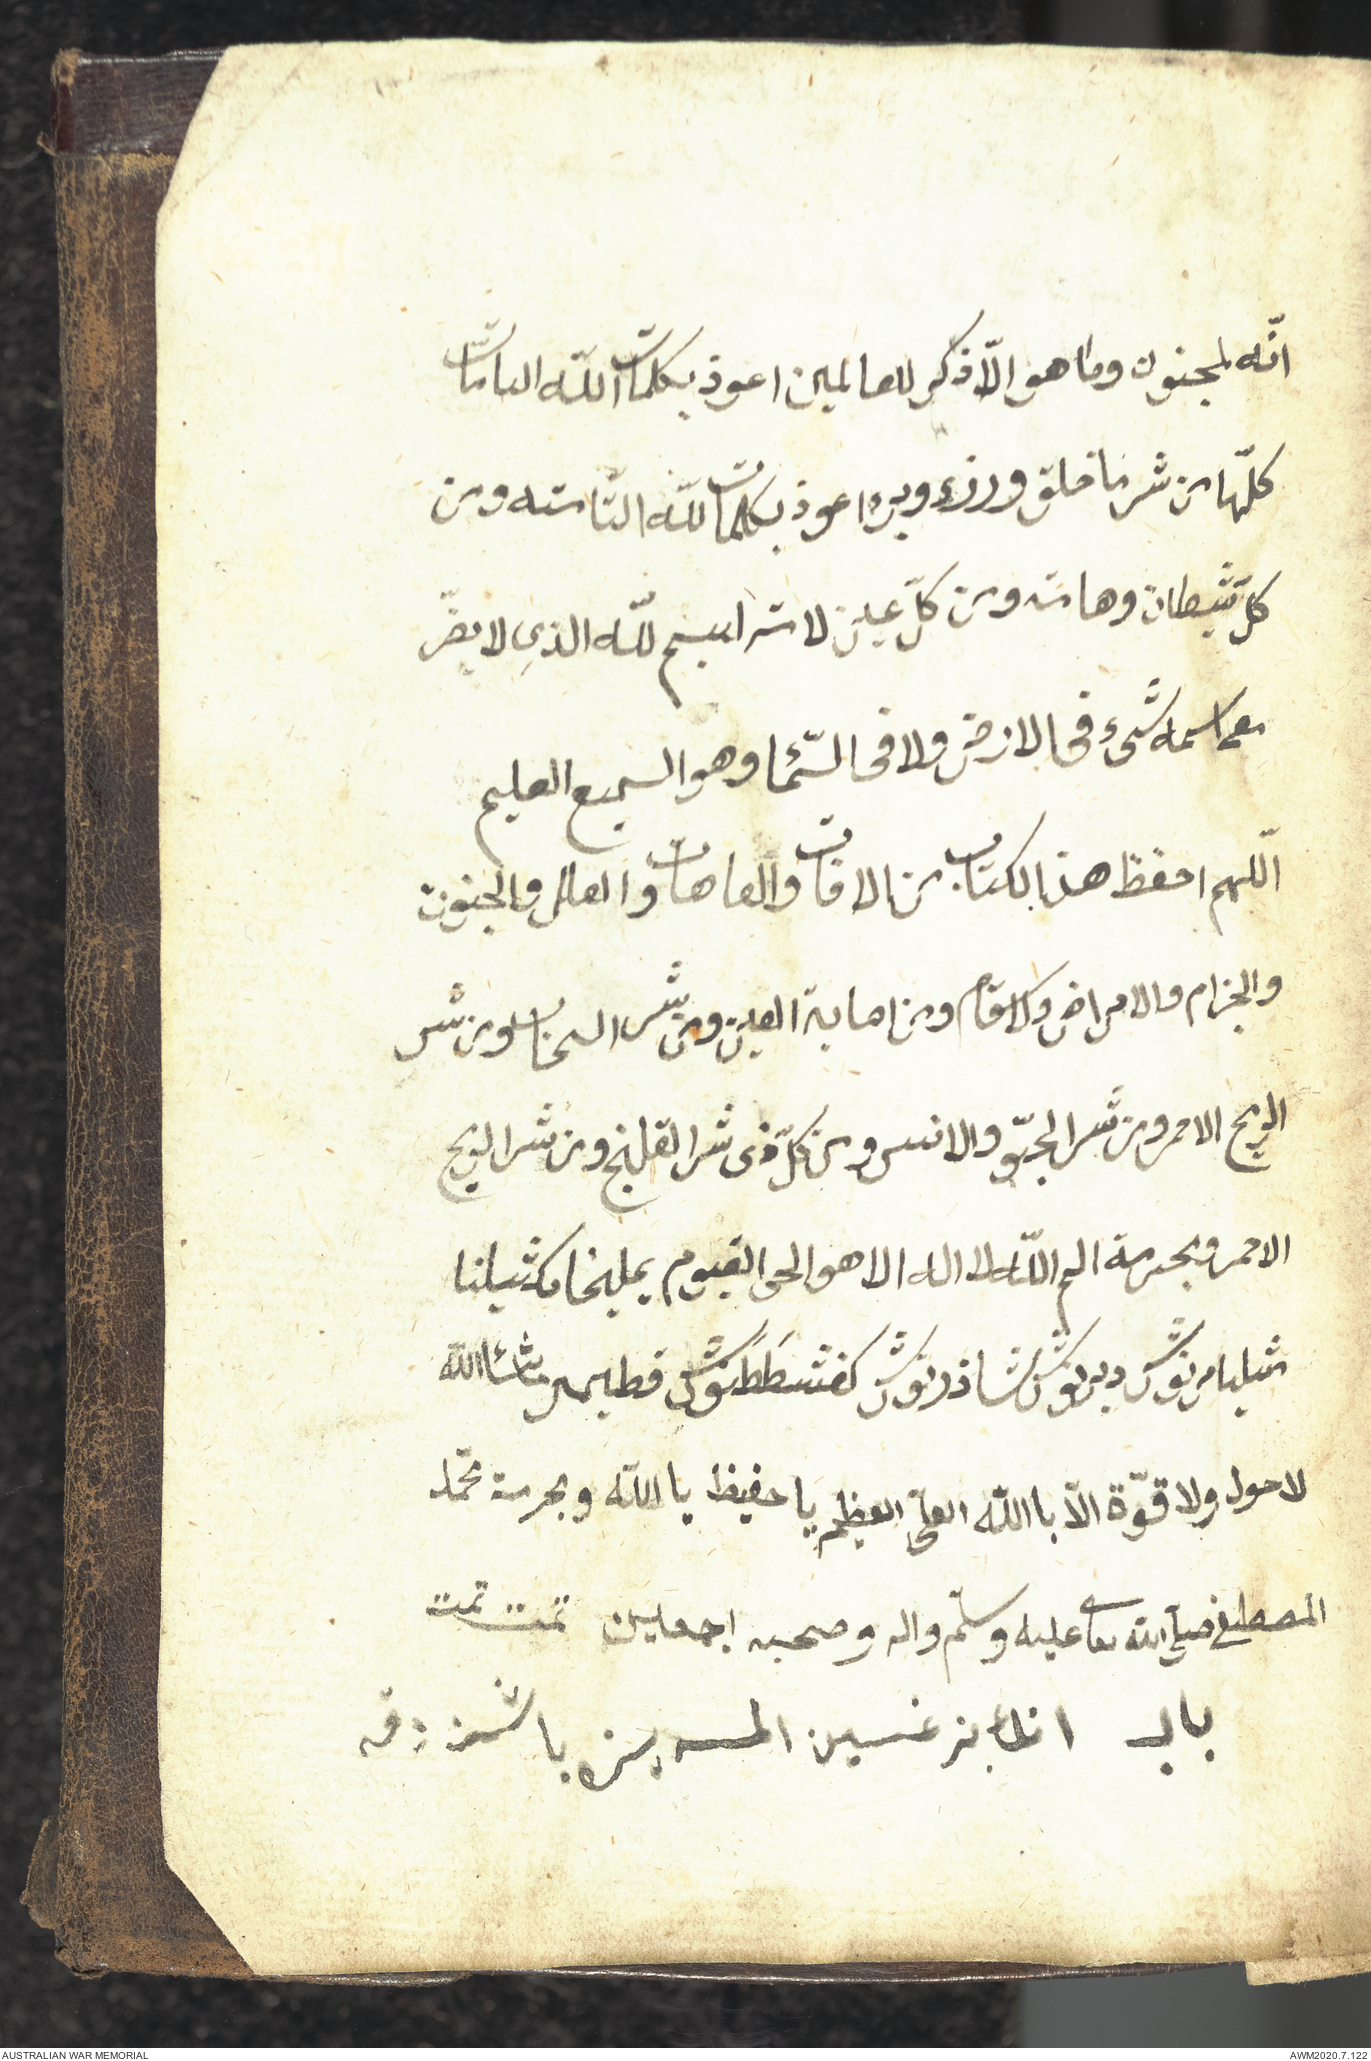 انّه لمجنون وما هو الّا ذكر للعالمين اعوذ بكلمات اللّه التامات
كلّها من شر ما خلق وذرء وبرء اعوذ بكلمات للّه التّامته ومن
كلّ شيطان وهامته ومن كلّ عين لامته بسم للّه الذي لا يضّر
مع اسمه شىء فى الارض ولا فى السّماء وهو السميع العليم
اللّهم احفظ هذا لكتاب من الافات والعاهات والعلل والجنون
والجزام والامراض وكلاقام ومن اصابة العين ومن شر السخاب ومن شر
الريح الاحمر ومن شر الجنّ والانس ومن كلّ ذى شر القلنج ومن شر الريح
الاحمر وبحرمة الم اللّه لا اله الا هو الحى القيوم يمليخا مكثيلنا
مثيليا مرنوش دبرنوش شاذرنوش كفشططنوش قطمير ماشاءالله
لا حول ولا قوّة الّا باالله العلى العظيم يا حفيظ يا الله وبحرمة محمّد
المصطفى صلى الله تعالى عليه وسلّم واله وصحبه اجمعين تمت تمت
باب